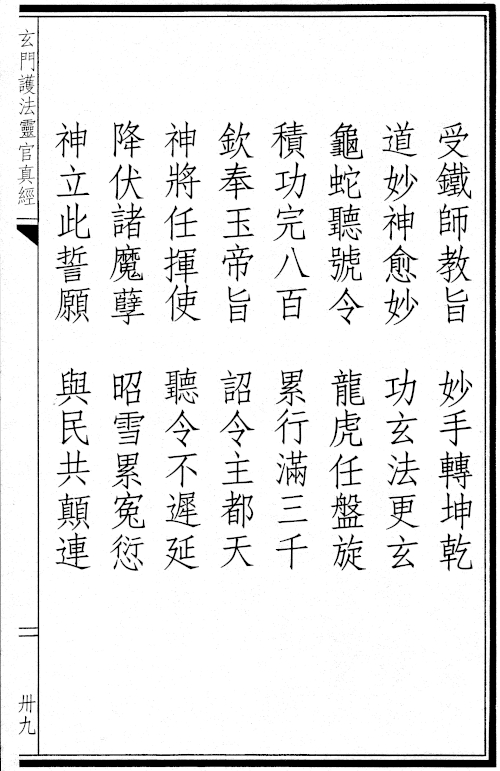 受鐵師教旨　妙手轉坤乾
道妙神愈妙　功玄法更玄
龜蛇聽號令　龍虎任盤旋
積功完八百　累行滿三千
欽奉玉帝旨　詔令主都天
神將任揮使　聽令不遲延
降伏諸魔孽　昭雪累冤愆
神立此誓願　與民共顛連
玄門護法靈官真經
二
卅九